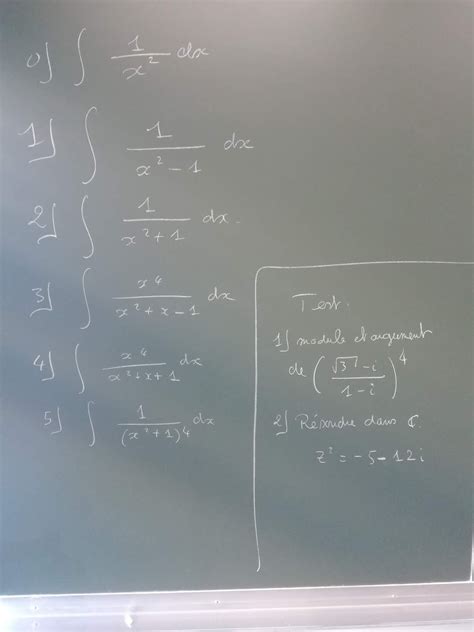 0] ∫ 1/x² dx
1] ∫ 1/(x² - 1) dx
2] ∫ 1/(x² + 1) dx.
3] ∫ x⁴/(x² + x - 1) dx
4] ∫ x⁴/(x² + x + 1) dx
5] ∫ 1/(x² + 1)⁴ dx
Test.
1] module et argument
de ((√3 - i)/(1 - i))⁴
2] Résoudre dans ℂ.
z² = -5 - 12i